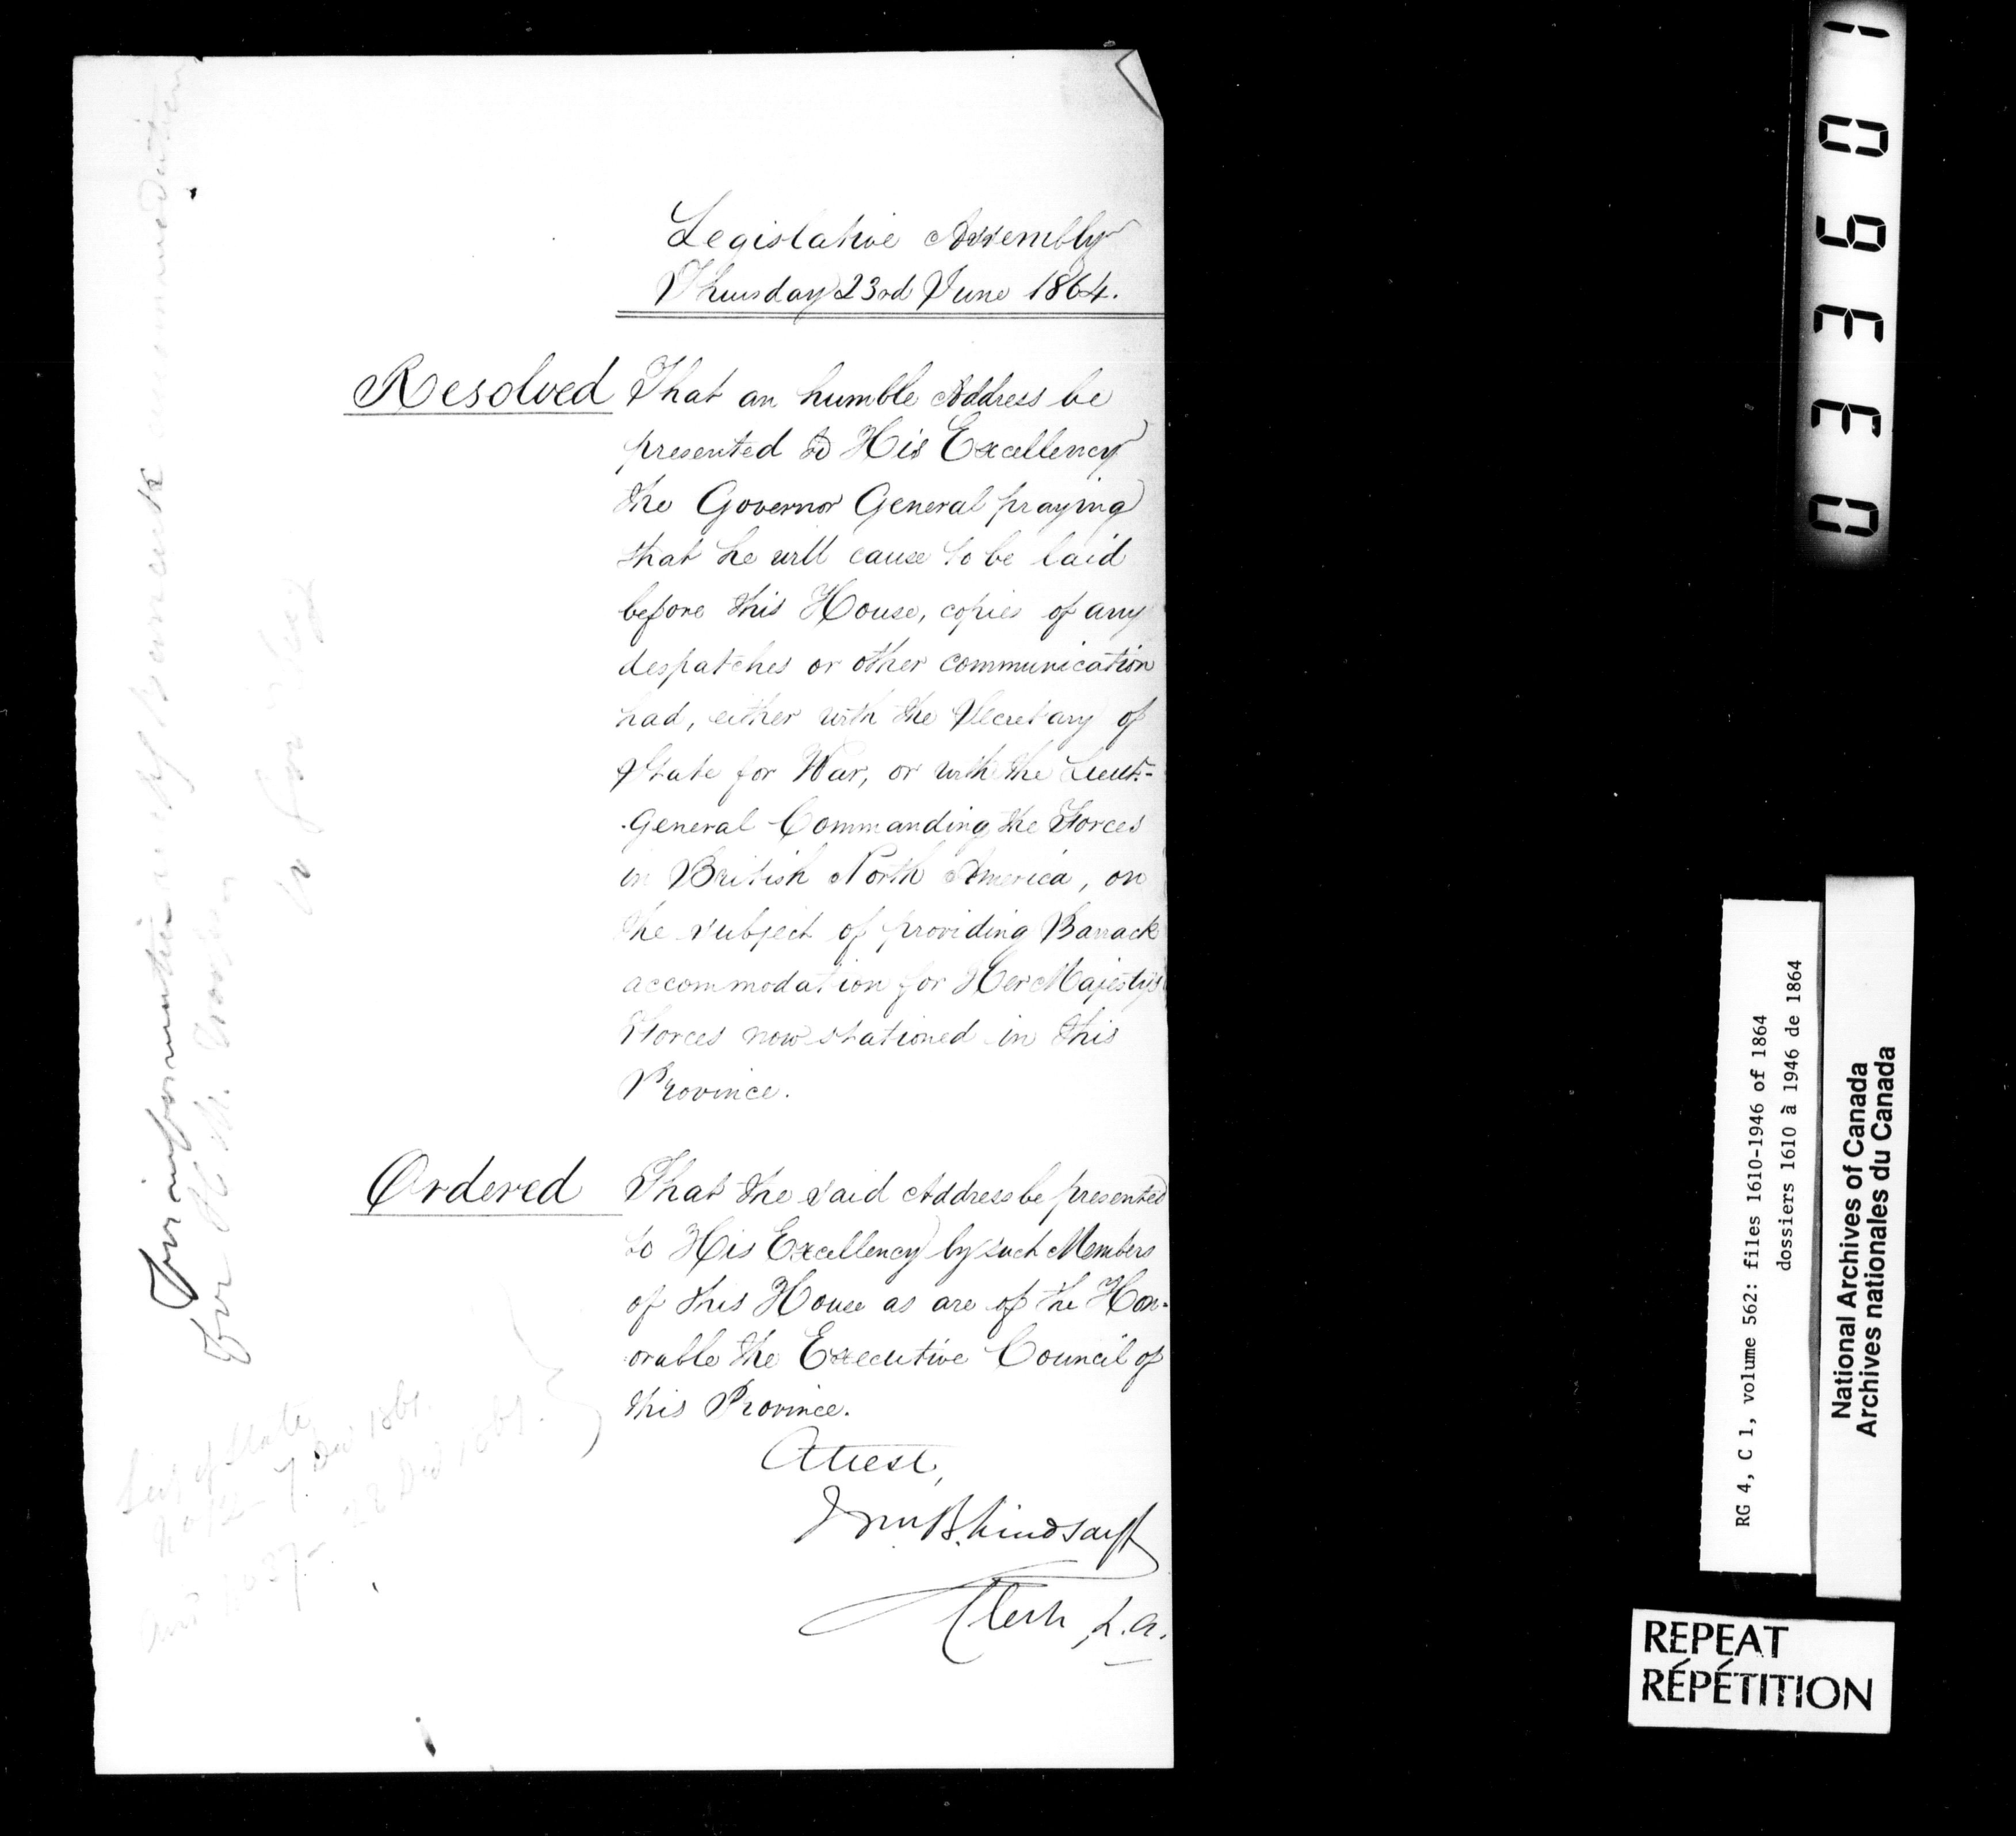 Legislative Assembly
Thursday 23rd June 1864.
Resolved That an humble Address be
presented to His Excellency
the Governor General praying
that he will cause to be laid
before this House, copies of any
despatches or other communication
had, either with the Secretary of
State for War, or with the Lieut.-
General Commanding the Forces
in British North America, on
the subject of providing Barrack
accommodation for Her Majesty's
Forces now stationed in this
Province.
Ordered That the said Address be presented
to His Excellency by such Members
of this House as are of the Hon-
orable the Executive Council of
this Province.
Attest,
Wm. B. Lindsay
Clerk, L.A.
For information as to Barrack accommodation
For H. M. Troops
Secy of State
7 Dec 1861.
28 Dec 1861.
03601
RG 4, C 1, volume 562: files 1610-1946 of 1864
dossiers 1610 à 1946 de 1864
National Archives of Canada
Archives nationales du Canada
REPEAT
RÉPÉTITION